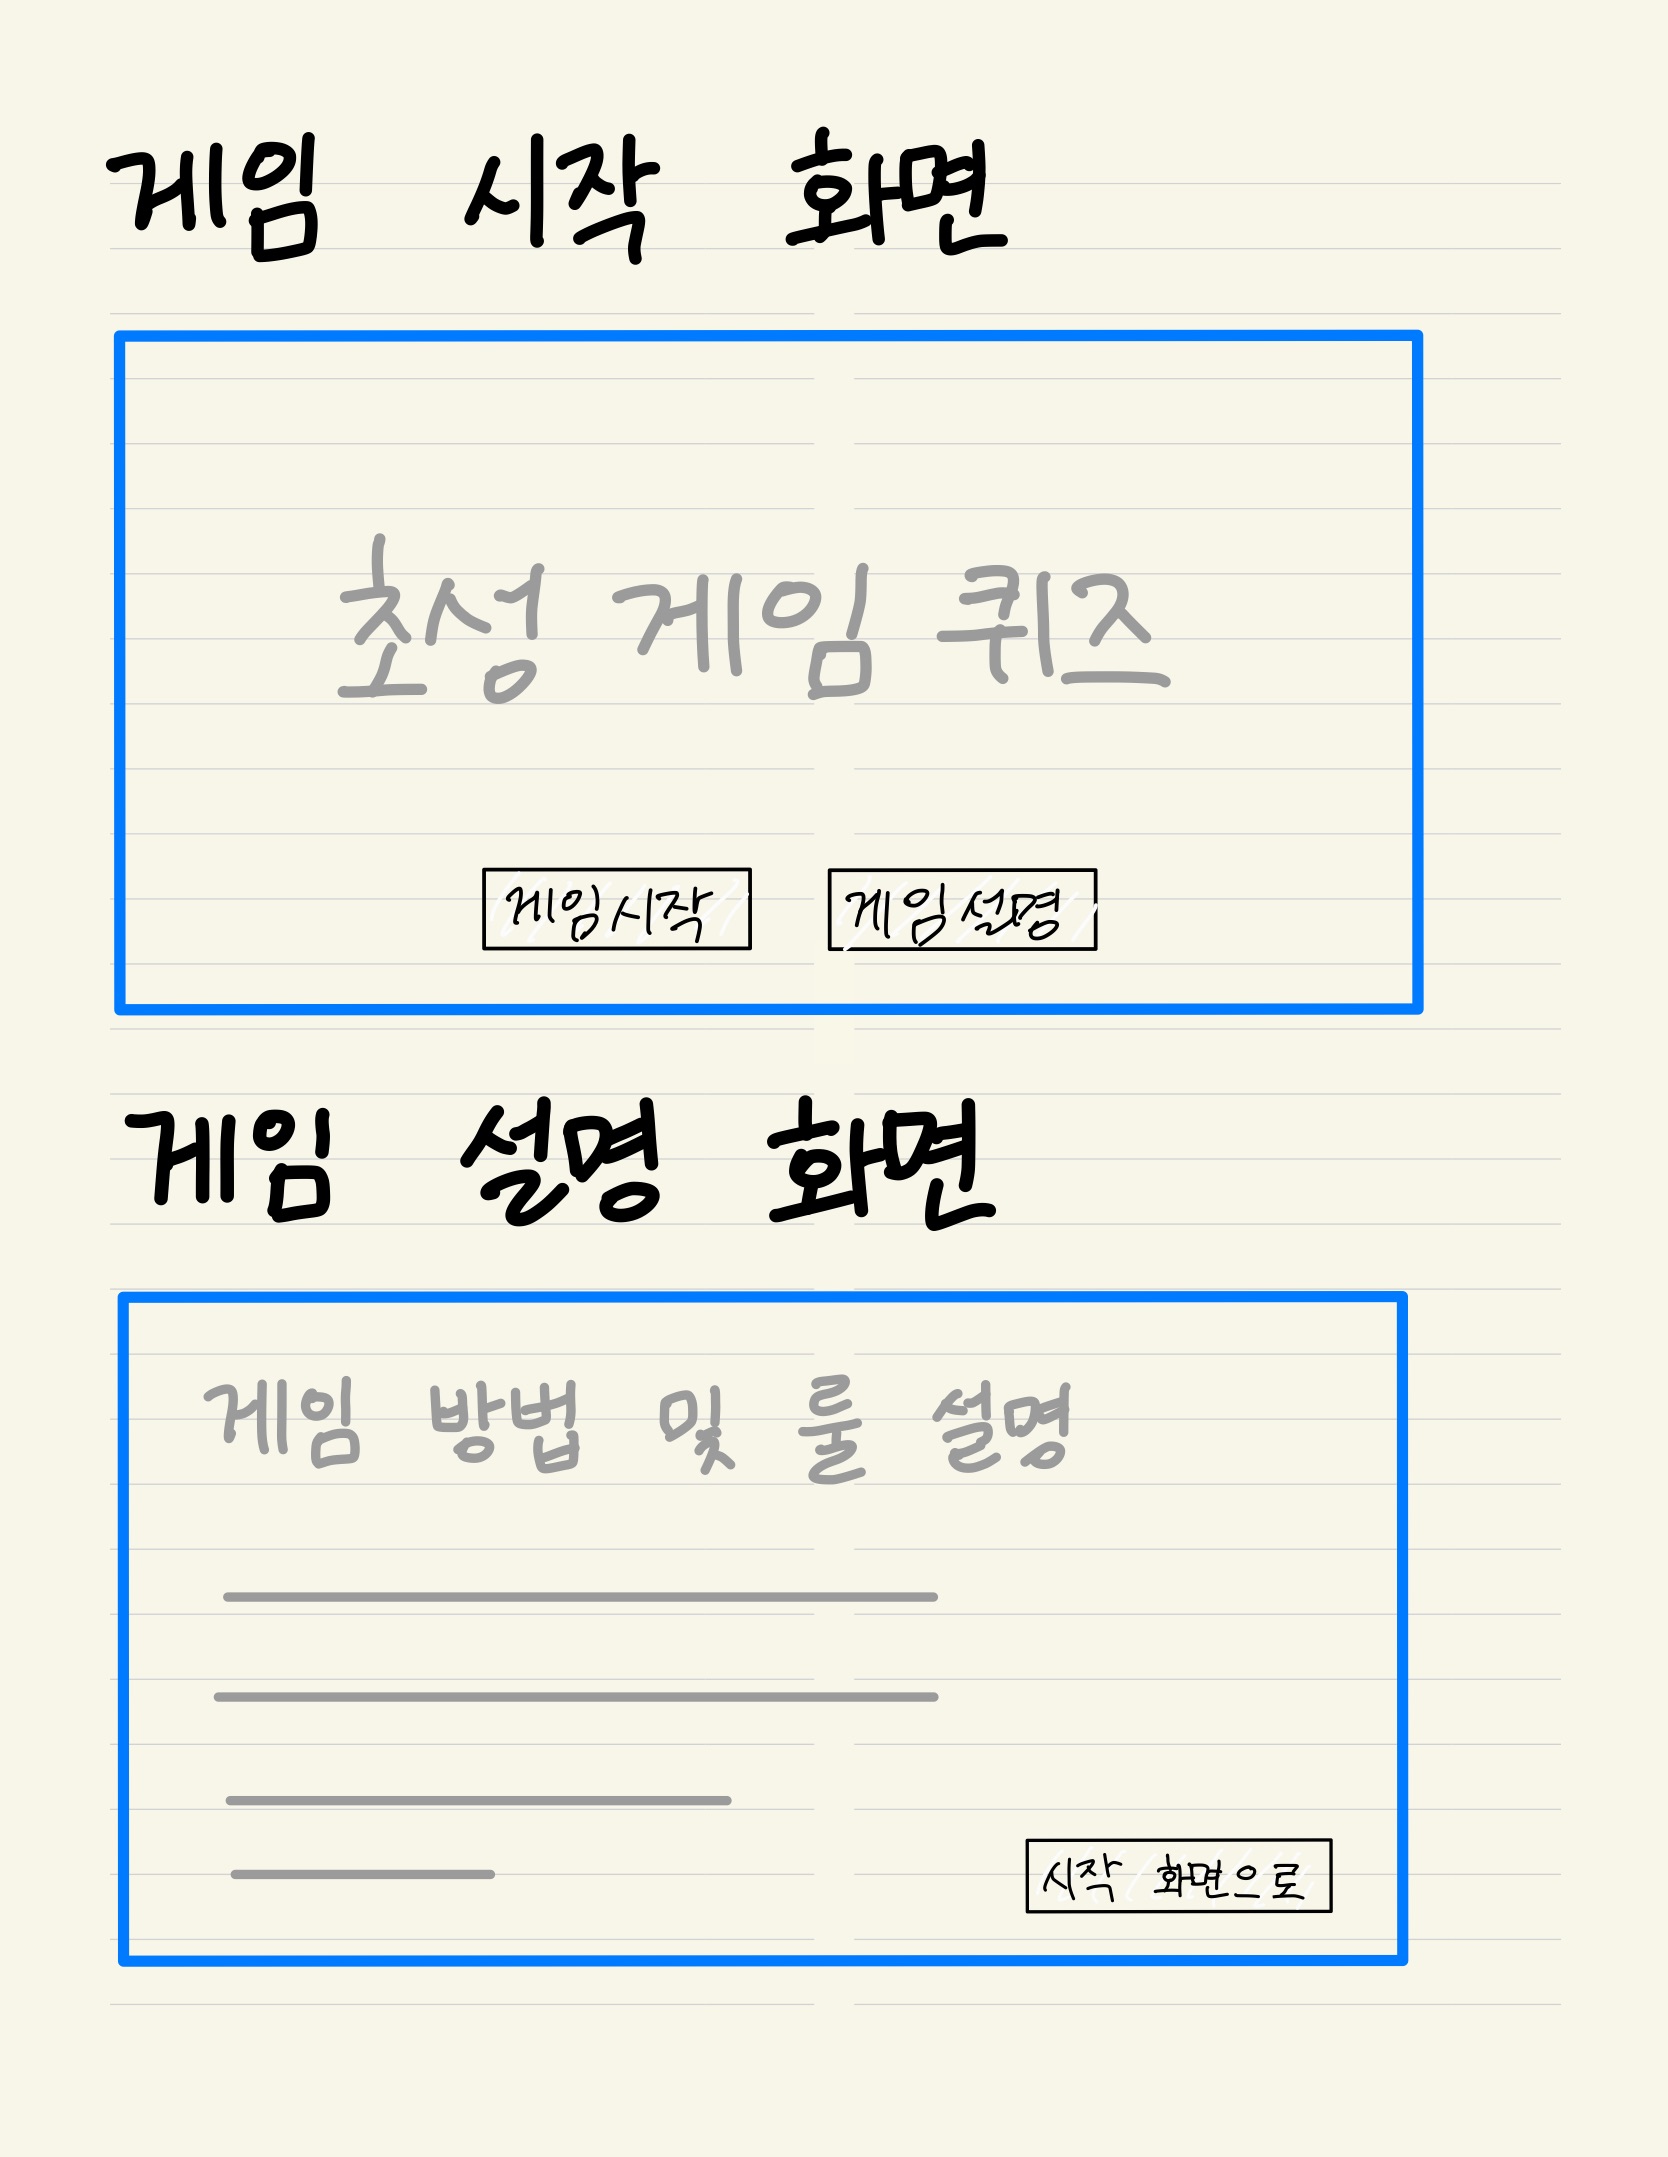 게임 시작 화면
초성 게임 퀴즈
게임시작 게임설명
게임 설명 화면
게임 방법 및 룰 설명
시작 화면으로